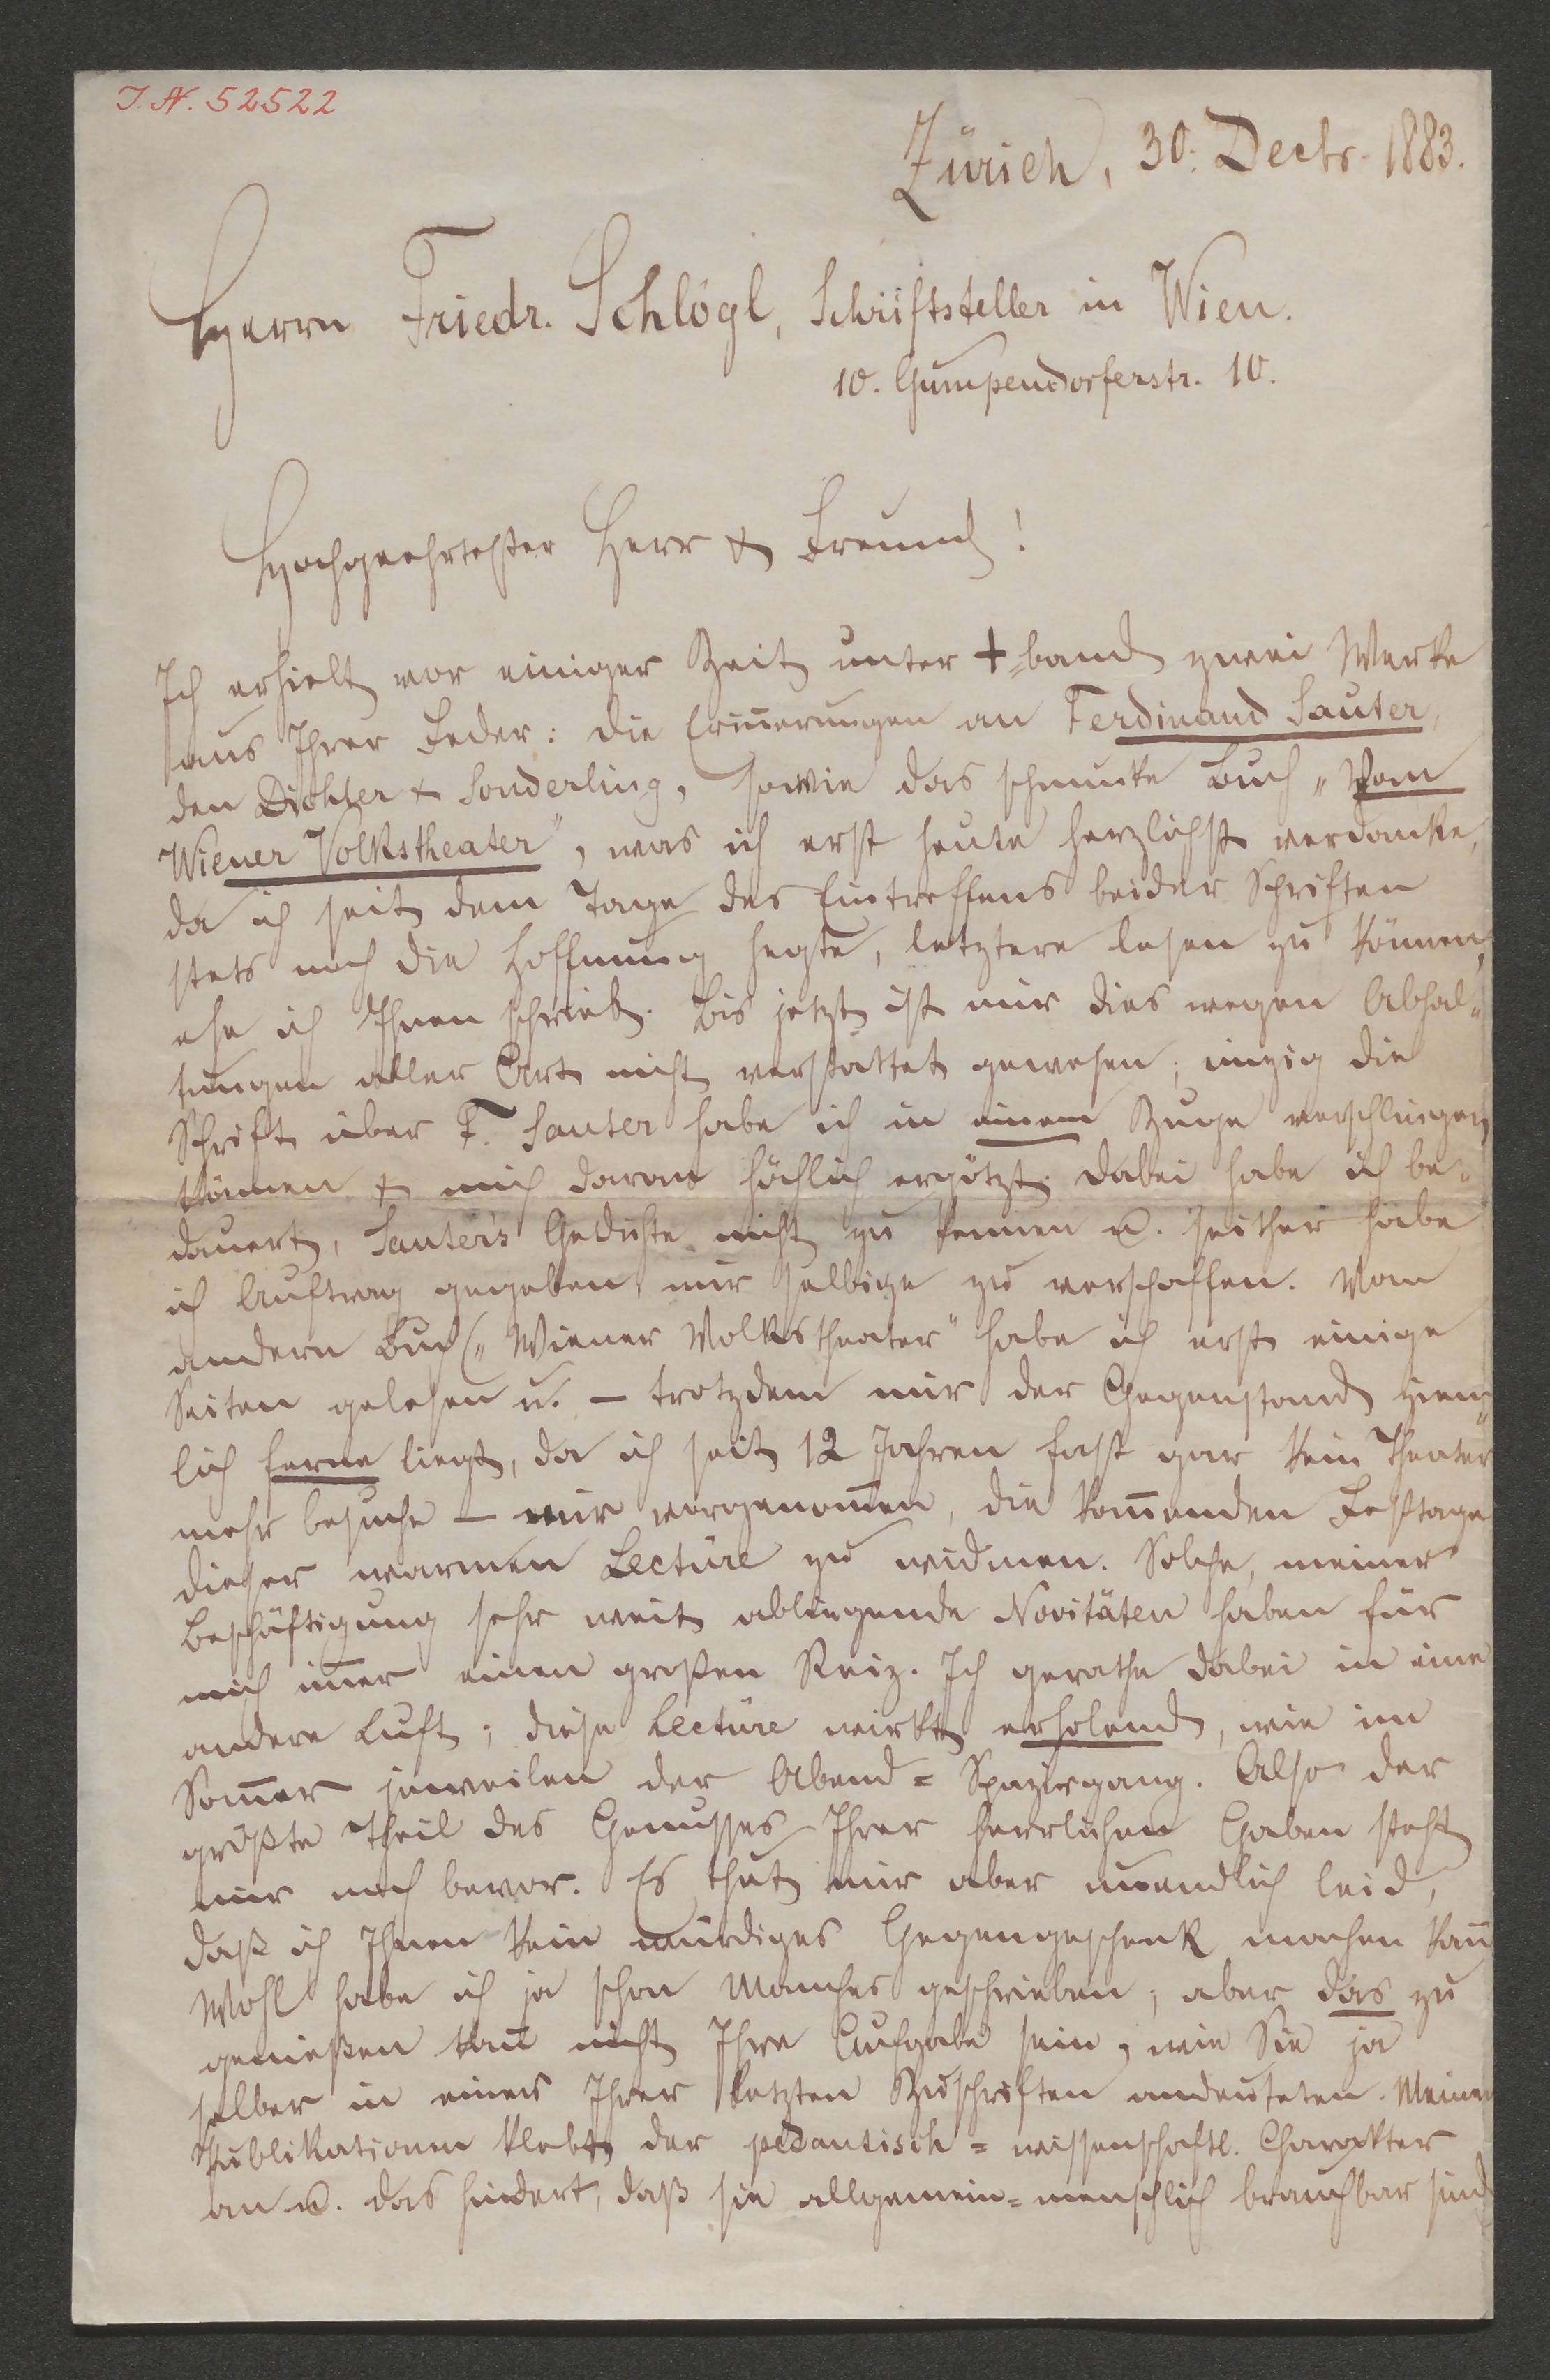 I. N. 52522
Zürich, 30. Decbr. 1883.
Herrn Friedr. Schlögl, Schriftsteller in Wien.
10. Gumpendorferstr. 10.
Hochgeehrtester Herr & Freund!
Ich erhielt vor einiger Zeit unter +band zwei Werke
aus Ihrer Feder: die Erin̄erungen an Ferdinand Sauter,
den Dichter & Sonderling, sowie das schmucke Buch „Vom
Wiener Volkstheater“, was ich erst heute herzlichst verdanke,
da ich seit dem Tage des Eintreffens beider Schriften
stets noch die Hoffnung hegte, letztere lesen zu können,
ehe ich Ihnen schrieb. Bis jetzt ist mir dies wegen Abhal-
tungen aller Art nicht verstattet gewesen; einzig die
Schrift über F. Sauter habe ich in einem Zuge verschlingen
können & mich daran höchlich ergötzt. Dabei habe ich be-
dauert, Sauter's Gedichte nicht zu kennen u. seither habe
ich Auftrag gegeben mir selbige zu verschaffen. Vom
andern Buch („Wiener Volkstheater“ habe ich erst einige
Seiten gelesen u. – trotzdem mir der Gegenstand ziem-
lich ferne liegt, da ich seit 12 Jahren fast gar kein Theater
mehr besuche – mir vorgenom̄en, die kom̄enden Festtage
dieser warmen Lectüre zu widmen. Solche, meiner
Beschäftigung sehr weit abliegende Novitäten haben für
mich im̄er einen großen Reiz. Ich gerathe dabei in eine
andere Luft; diese Lectüre wirkt erholend, wie im
Som̄er jeweilen der Abend-Spaziergang. Also der
größte Theil des Genusses Ihrer herrlichen Gaben steht
mir noch bevor. Es thut mir aber unendlich leid,
daß ich Ihnen kein würdiges Gegengeschenk machen kan̄
Wohl habe ich ja schon Manches geschrieben; aber das zu
genießen kan̄ nicht Ihre Aufgabe sein, wie Sie ja
selber in einer Ihrer letzten Zuschriften andeuteten. Meinen
Publikationen klebt der pedantisch-wissenschaftl. Charakter
an u. das hindert, daß sie allgemein-menschlich brauchbar sind